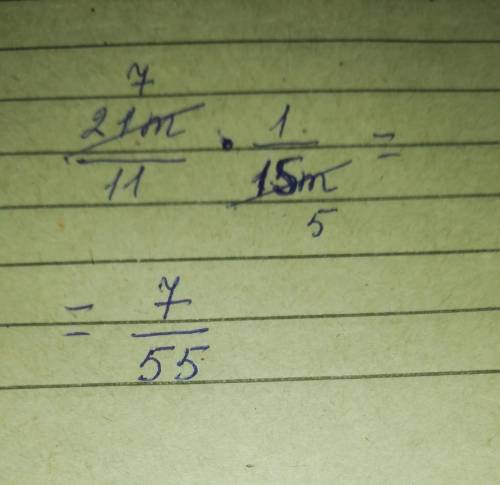 7
21m / 11 · 1 / 15m =
5
= 7 / 55